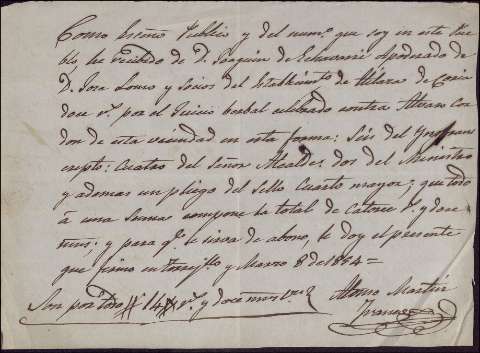 Como Essno Publico y del numo. que soy en este Pue
blo, he recibido de D. Joaquin de Echavarri Apoderado de
D. Jose Lomo y Socios del Establecimto de Hilaza de Coria
doce rs. por el Juicio berbal celebrado contra Alvaro Con
don de esta vecindad en esta forma: Seis del
cuatro del Señor Alcalde; dos del Ministro
y ademas un pliego del Sello Cuarto mayor; que todo
á una Suma compone la total de Catorce rs. y doce
mrs; y para qe. le sirva de abono, le doy el presente
que firmo en y Marzo 8 de 1854=
Son por todo # 14 # rs. y doce mrs vn. Alonso Martin